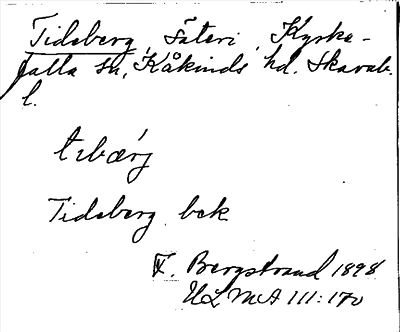 Tidsberg, Säteri, Kyrke-
falla sn, Kåkinds hd. Skarab.
l.
tisbærj
Tidsberg bek
F. Bergstrand 1898
ULMA 111:170